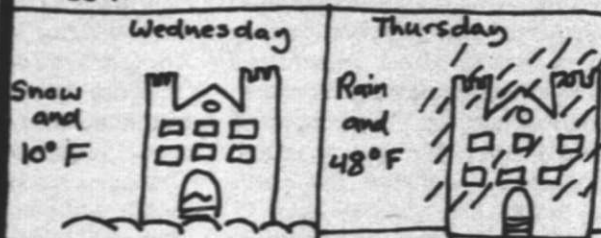 Wednesday
Snow
and
10° F
Thursday
Rain
and
48° F